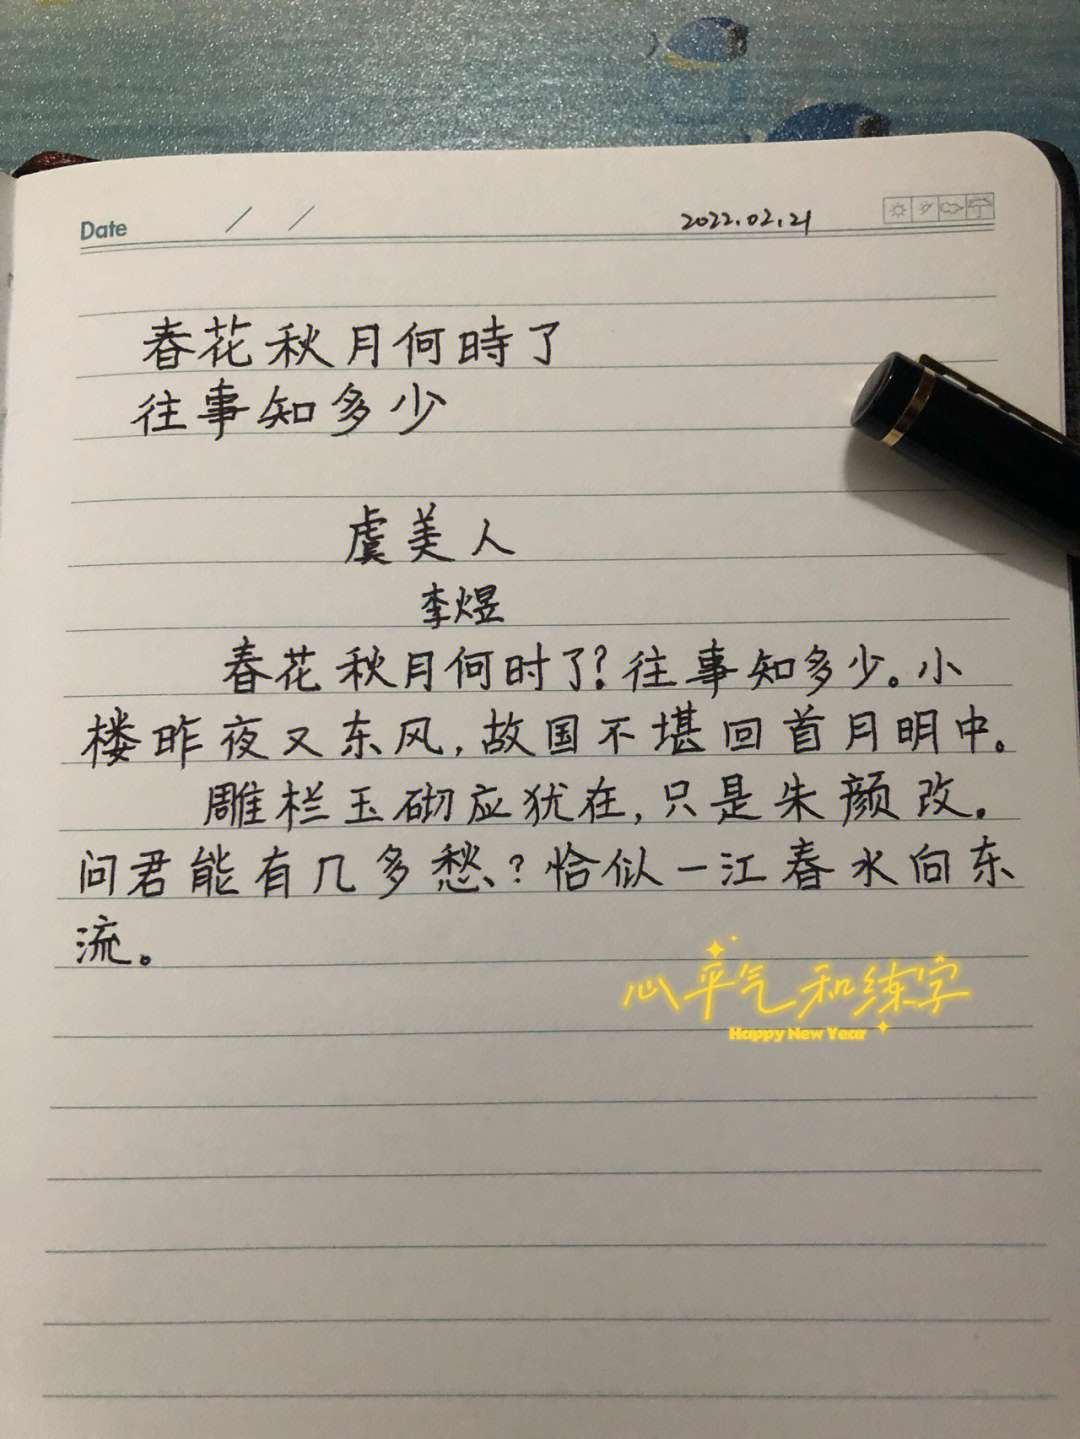 Date / / 2022.02.21
春花秋月何時了
往事知多少
虞美人
李煜
春花秋月何时了?往事知多少。小
楼昨夜又东风,故国不堪回首月明中。
雕栏玉砌应犹在,只是朱颜改。
问君能有几多愁?恰似一江春水向东
流。
心平气和练字
Happy New Year